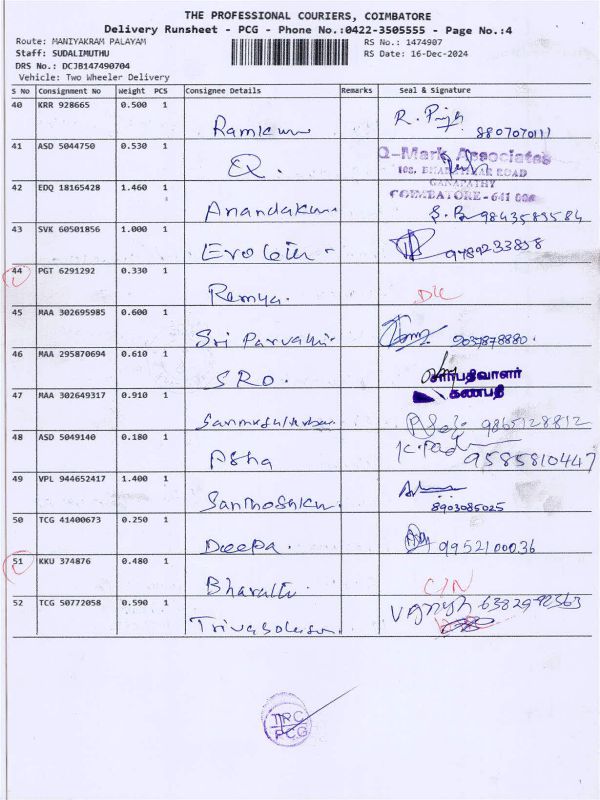 THE PROFESSIONAL COURIERS, COIMBATORE
Delivery Runsheet - PCG - Phone No.:0422-3505555 - Page No.:4
Route: MANIYAKRAM PALAYAM
RS No.: 1474907
Staff: SUDALIMUTHU
RS Date: 16-Dec-2024
DRS No.: DCJB147490704
Vehicle: Two Wheeler Delivery
S No Consignment No Weight PCS Consignee Details Remarks Seal & Signature
40 KRR 928665 0.500 1
Ramkum 8807070111
41 ASD 5044750 0.530 1
Q. Q-Mark Associates
108, BHARATHIAR ROAD
GANAPATHY
COIMBATORE - 641 006
42 EDQ 18165428 1.460 1
Anandakum 9843589584
43 SVK 60501856 1.000 1
9789233858
44 PGT 6291292 0.330 1
Ramya. DL
45 MAA 302695985 0.600 1
Sri Parvathi. 9037878880.
46 MAA 295870694 0.610 1
SRO. சார்பதிவாளர்
கணபதி
47 MAA 302649317 0.910 1
9865128812
48 ASD 5049140 0.180 1
Asha 9585810447
49 VPL 944652417 1.400 1
Santhoshku. 8903085025
50 TCG 41400673 0.250 1
Deepa. 9952100036
51 KKU 374876 0.480 1
Bharathi. C/N
52 TCG 50772058 0.590 1
TRC
PCG